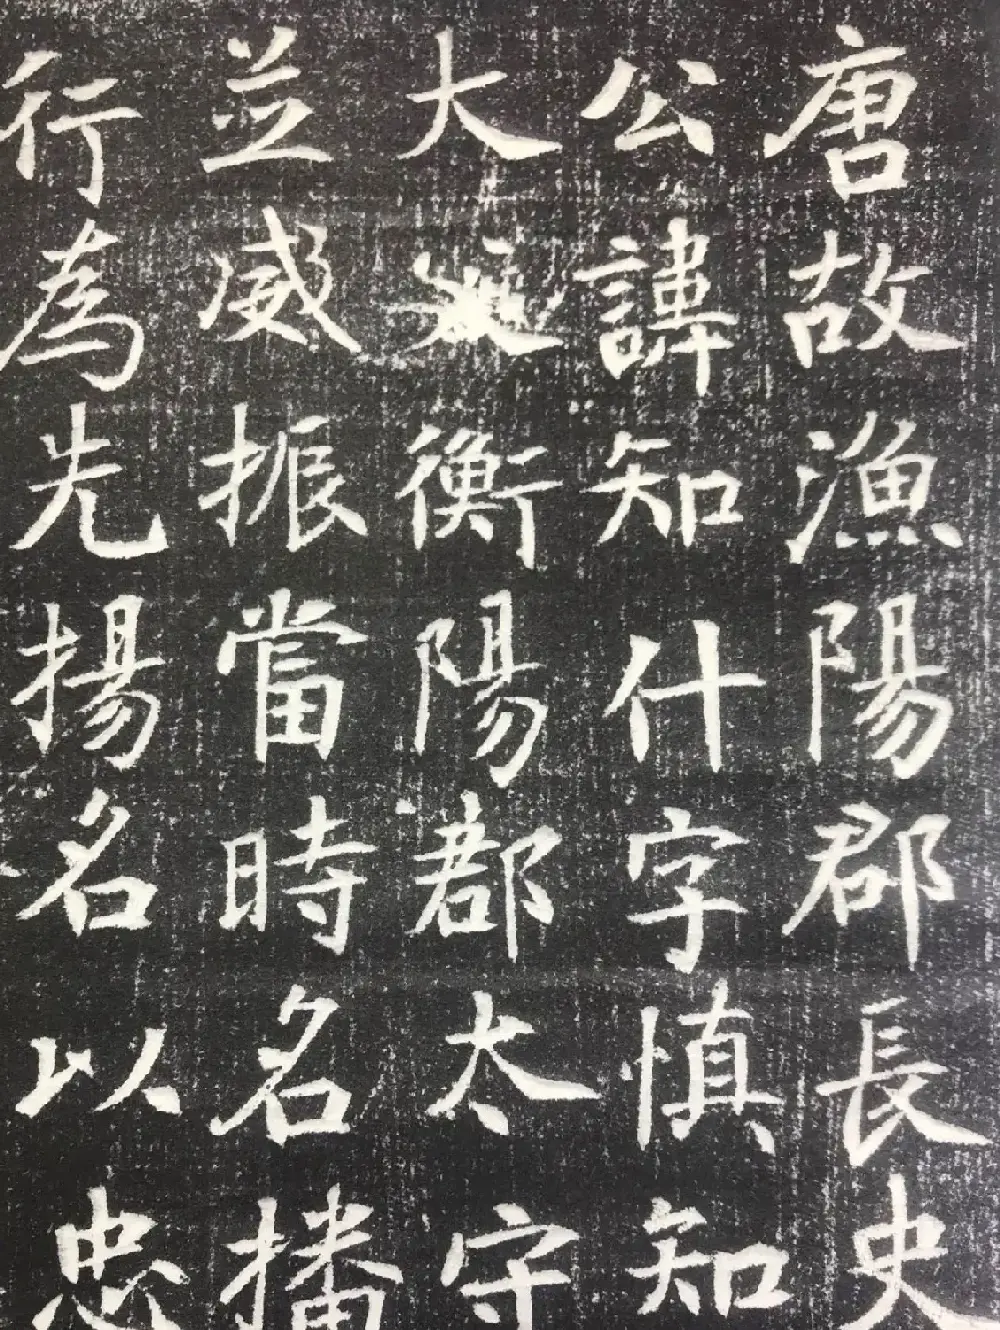 唐故漁陽郡長史
公諱知什字慎知
大衡陽郡太守
並威振當時名播
行為先揚名以忠